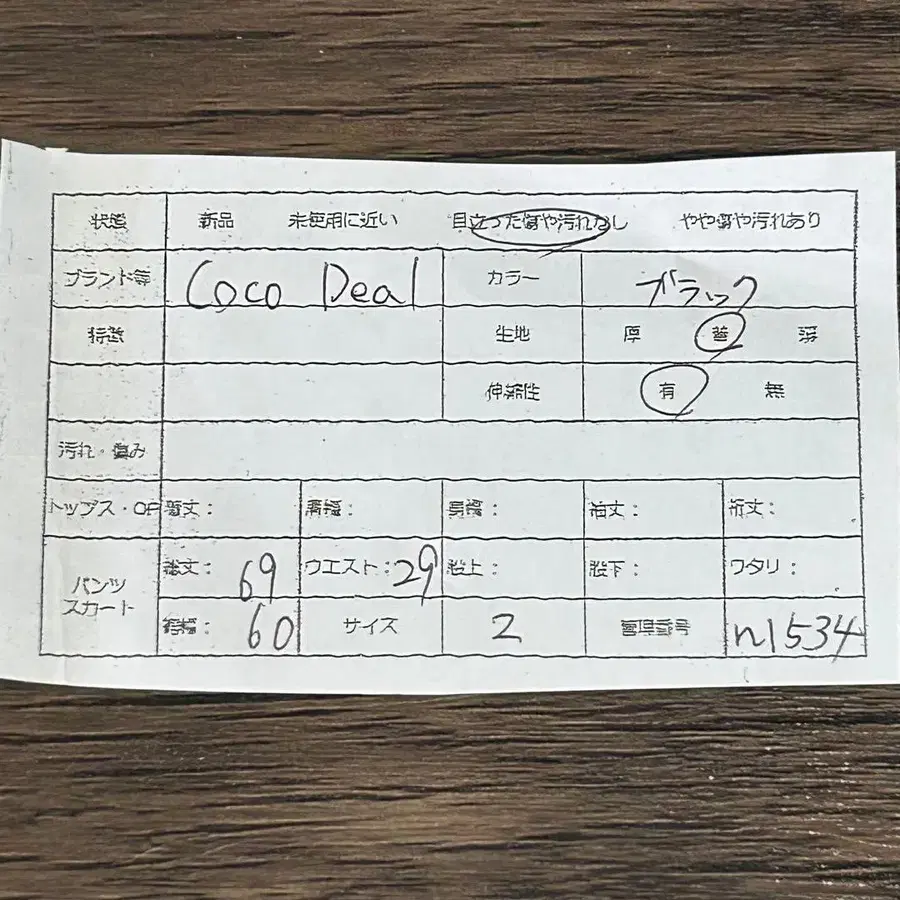 状態 新品 未使用に近い 目立った傷や汚れなし やや傷や汚れあり
ブランド等 Coco Deal カラー ブラック
特徴 生地 厚 普 薄
伸縮性 有 無
汚れ・傷み
トップス・OP 着丈： 肩幅： 身幅： 袖丈： 裄丈：
パンツ スカート 総丈： 69 ウエスト： 29 股上： 股下： ワタリ：
裾幅： 60 サイズ 2 管理番号 n1534